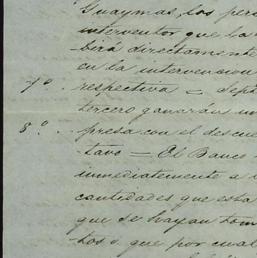 Guaymas, los per
interventor que la
birá directamente
en la intervencion
7º. respectiva = Sépt
tercero ganarán un
8º. presa con el descue
tavo = El Banco
inmediatamente a
cantidades que esta
que se hayan tom
hos o que por cual